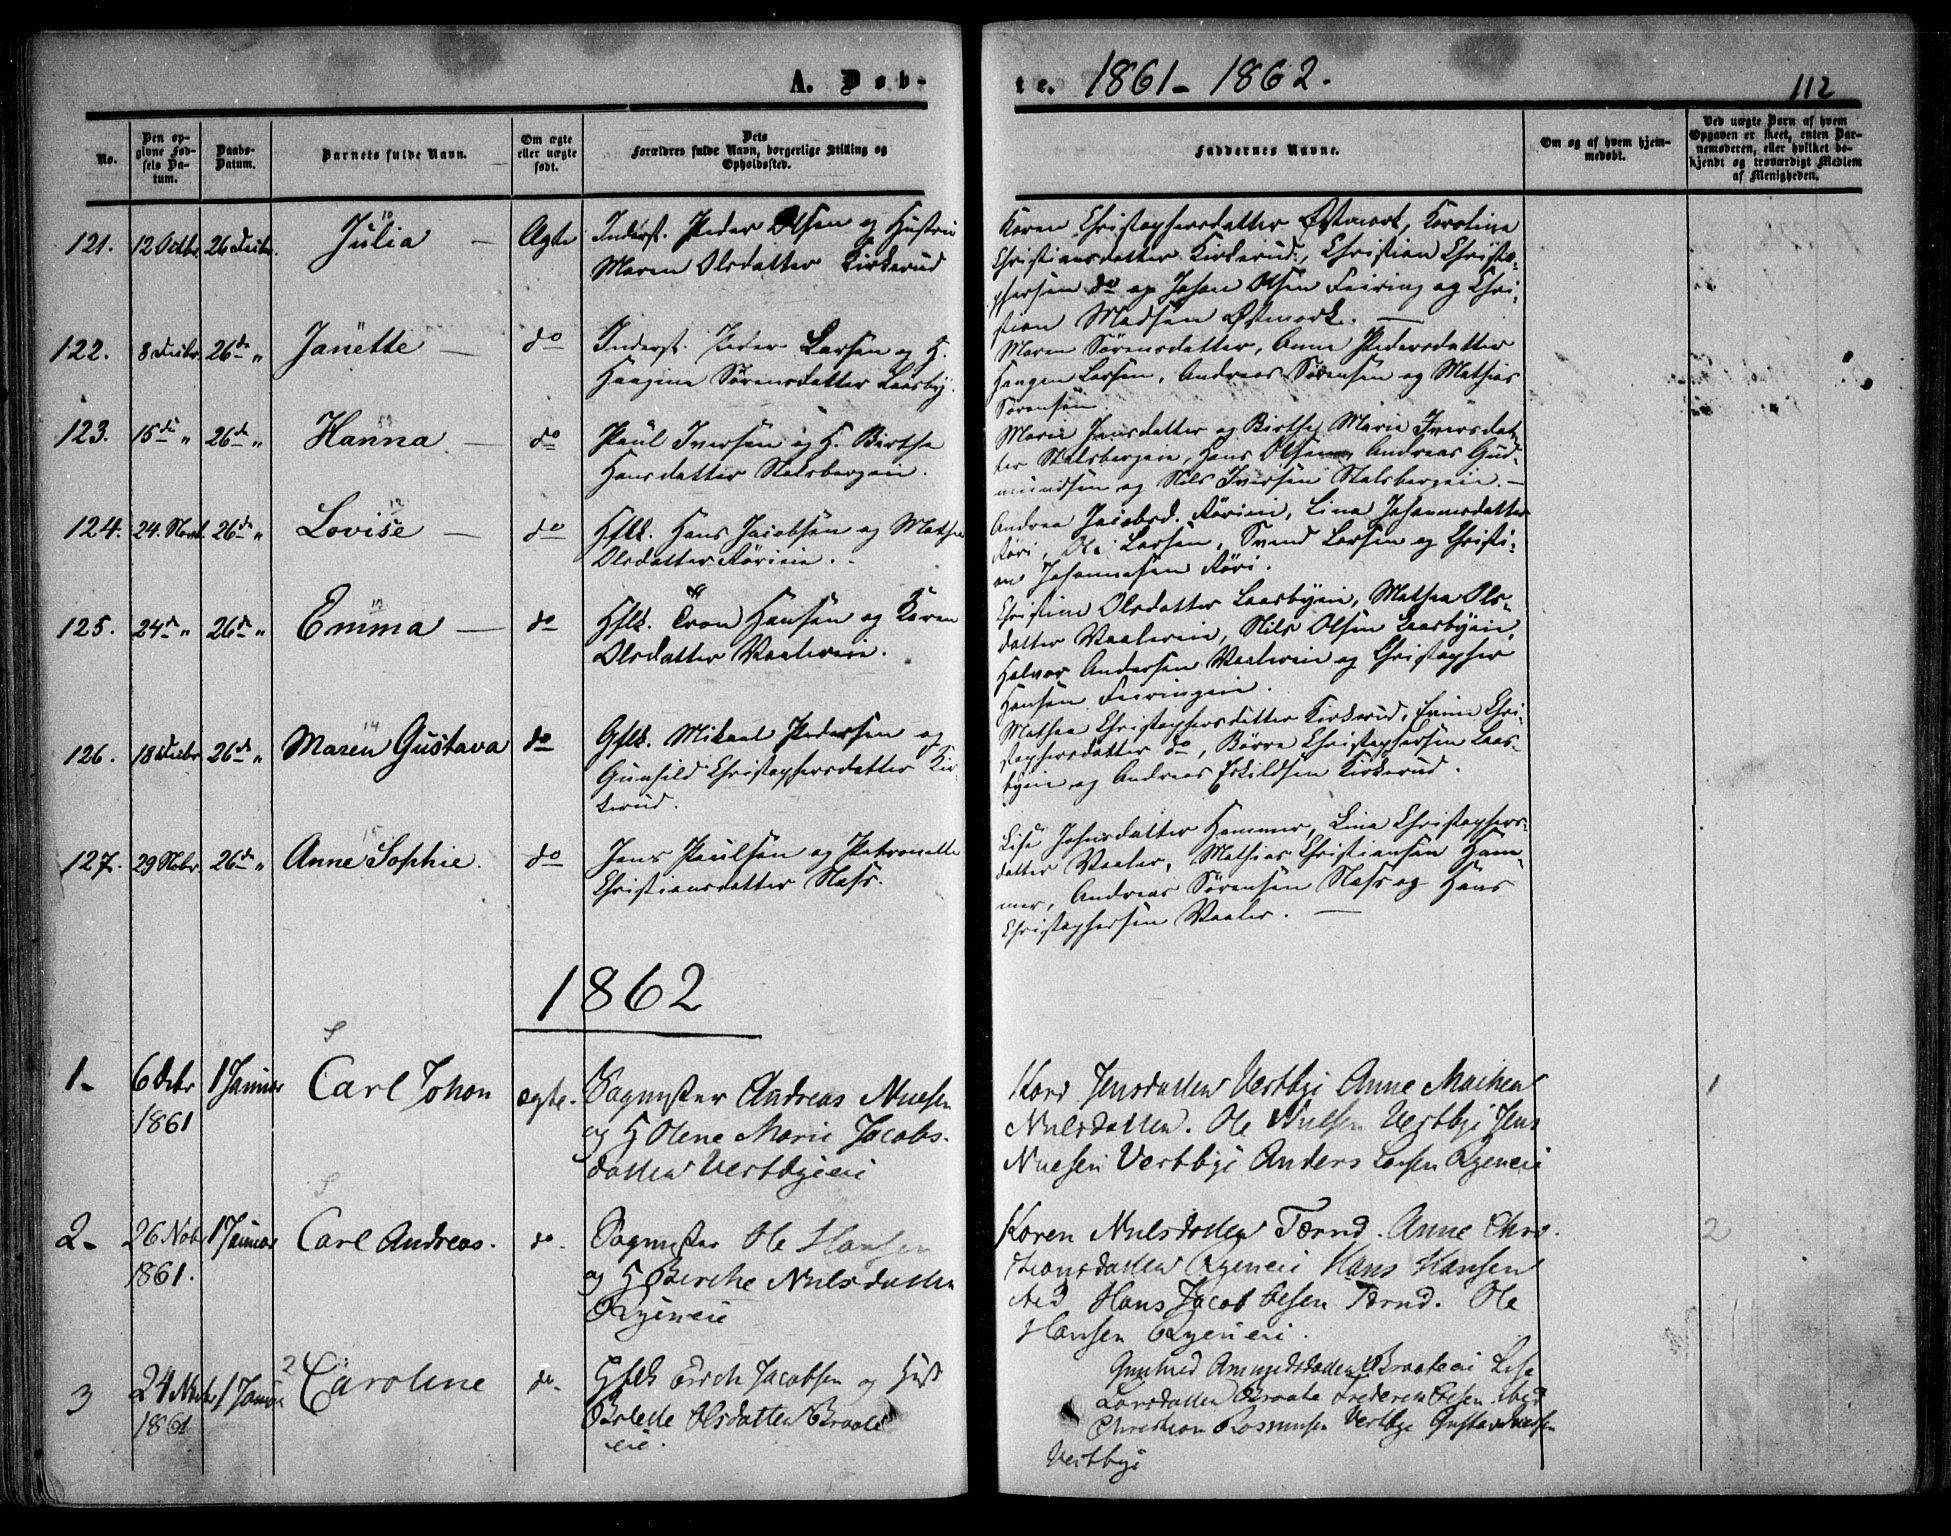 A. Døb-
te. 1861-1862.
112
No.
Den op-
givne Fød-
sels Da-
tum.
Daabs-
Datum.
Barnets fulde Navn.
Om ægte
eller uægte
født.
Dets
Forældres fulde Navn, borgerlige Stilling og
Opholdssted.
Faddernes Navne.
Om og af hvem hjem-
medøbt.
Ved uægte Børn af hvem
Opgaven er skeet, enten Bar-
nemoderen, eller hvilket be-
kjendt og troværdigt Medlem
af Menigheden.
121. 12 Octbr. 26 Decbr. Julia — Ægte
10
Inderst. Peder Olsen og Hustru
Maren Olsdatter Kirkerud
Karen Christophersdatter Østmork, Karoline
Christiansdatter Kirkerud, Christian Christo-
phersen do og Johan Olsen Feiring og Chri-
stian Madsen Østmork. —
122. 8 Decbr. 26de " Janette — do
Inderst. Peder Larsen og H.
Haagine Sørensdatter Laasby.
Maren Sørensdatter, Anne Pedersdatter
Haagen Larsen, Andreas Sørensen og Mathias
Sørensen
123. 15de " 26de " Hanna — do
Paul Iversen og H. Birthe
Hansdatter Stalsbergeie.
Marie Jensdatter og Birthe Marie Iversdat-
ter Stalsbergeie, Hans Olsen, Andreas Gud-
mundsen og Nils Iversen Stalsbergeie. —
124. 24. Novb. 26de " Lovise — do
12
Hsfk. Hans Jacobsen og Mathea
Olsdatter Rørieie.
Andrea Jacobsd. Rørieie, Lina Johannesdatter
Røri, Ole Larsen, Svend Larsen og Christi-
an Johannesen Røri.
125. 24de " 26de " Emma — do
13
Hsfk. Tron Hansen og Karen
Olsdatter Vaalereie.
Christine Olsdatter Laasbyeie, Mathea Ols-
datter Vaalereie, Nils Olsen Laasbyeie,
Halvor Andersen Vaalereie og Christopher
Hansen Feiringeie.
126. 18 Decbr. 26de " Maren Gustava do
14
Gsfk. Mikael Pedersen og
Gunhild Christophersdatter Kir-
kerud.
Mathea Christophersdatter Kirkerud, Chri-
stophersdatter do, Børre Christophersen Laas-
byeie og Andreas Eskildsen Kirkerud.
127. 29 Nvbr. 26de " Anne Sophie. do
15
Jens Paulsen og Petronelle
Christiansdatter Næss.
Lise Johnsdatter Hammer, Lina Christophers-
datter Vaaler, Mathias Christiansen Ham-
mer, Andreas Sørensen Næss og Hans
Christophersen Vaaler. —
1862
1- 6 Decbr 1 Januar Carl Johan ægte.
1861
Sagmester Andreas Nilsen
og H Olene Marie Jacobs-
datter Vestbyeie
Kari Jensdatter Vestbye Anne Maren
Nilsdatter. Ole Nilsen Vestbye Jens
Nilsen Vestbye Anders Larsen Ryeneie
1
2- 26 Nob 1 Januar Carl Andreas. do.
1861.
Sagmester Ole Hansen
og H Berthe Nilsdatter
Ryeneie
Karen Nilsdatter Tærud. Anne Chri-
stiansdatter Ryeneie Hans Hansen
ibid Hans Jacobsen Tærud. Ole
Hansen Ryeneie.
2
3 24 Novbr 1 Januar Caroline do.
1861
2
Gsfk Erich Jacobsen og Hust
Berthe Olsdatter Braate
eie.
Gunhild Amundsdatter Braateeie Lise
Larsdatter Braate Frederik Olsen ibid
Christian Rasmusen Vestbye Gustav
Vestbye